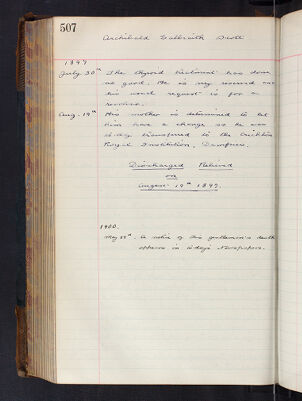 507
Archibald Galbraith Scott
1897
July 30th The thyroid treatment has done
no good. He is very reserved and
his usual request is for a
Aug. 19th His mother is determined to let
him have a change so he was
to-day transferred to the Crichton
Royal Institution, Dumfries.
Discharged Relieved
on
August 19th 1897.
1900.
May A notice of this gentleman's death
appears in to-day's Newspapers.